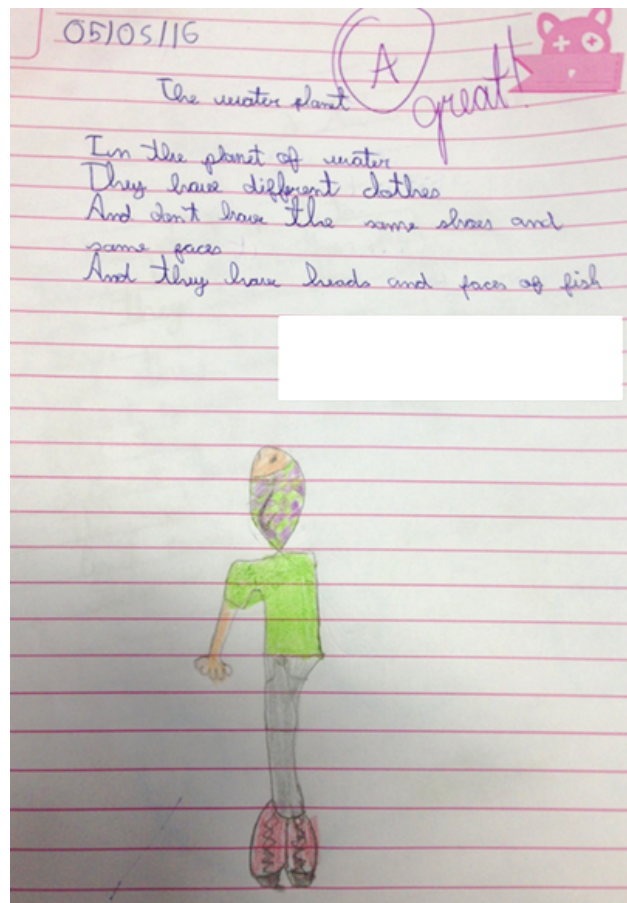 05/05/16
A
great!
The water planet
In the planet of water
They have different clothes
And don't have the same shoes and
same faces
And they have heads and faces of fish